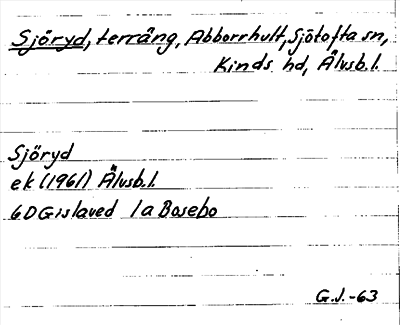 Sjöryd, terräng, Abborrhult, Sjötofta sn,
Kinds hd, Älvsb.l.
Sjöryd
ek (1961) Älvsb.l.
6D Gislaved 1a Bosebo
G.J.-63